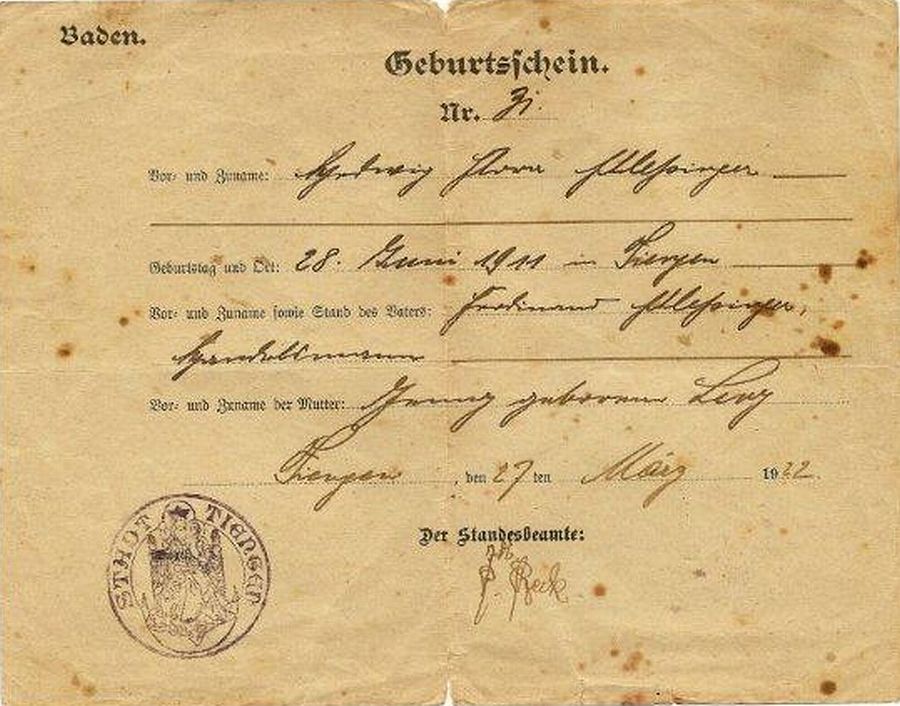 Baden.
Geburtsschein.
Nr.
Vor- und Zuname: Hedwig Flora Schlesinger
Geburtstag und Ort: 28. Juni 1911 in Tiengen
Vor- und Zuname sowie Stand des Vaters: Ferdinand Schlesinger,
Handelsmann
Vor- und Zuname der Mutter: Jenny geborene Levy
Tiengen, den 27ten März 1922.
Der Standesbeamte:
Beck
STADT TIENGEN